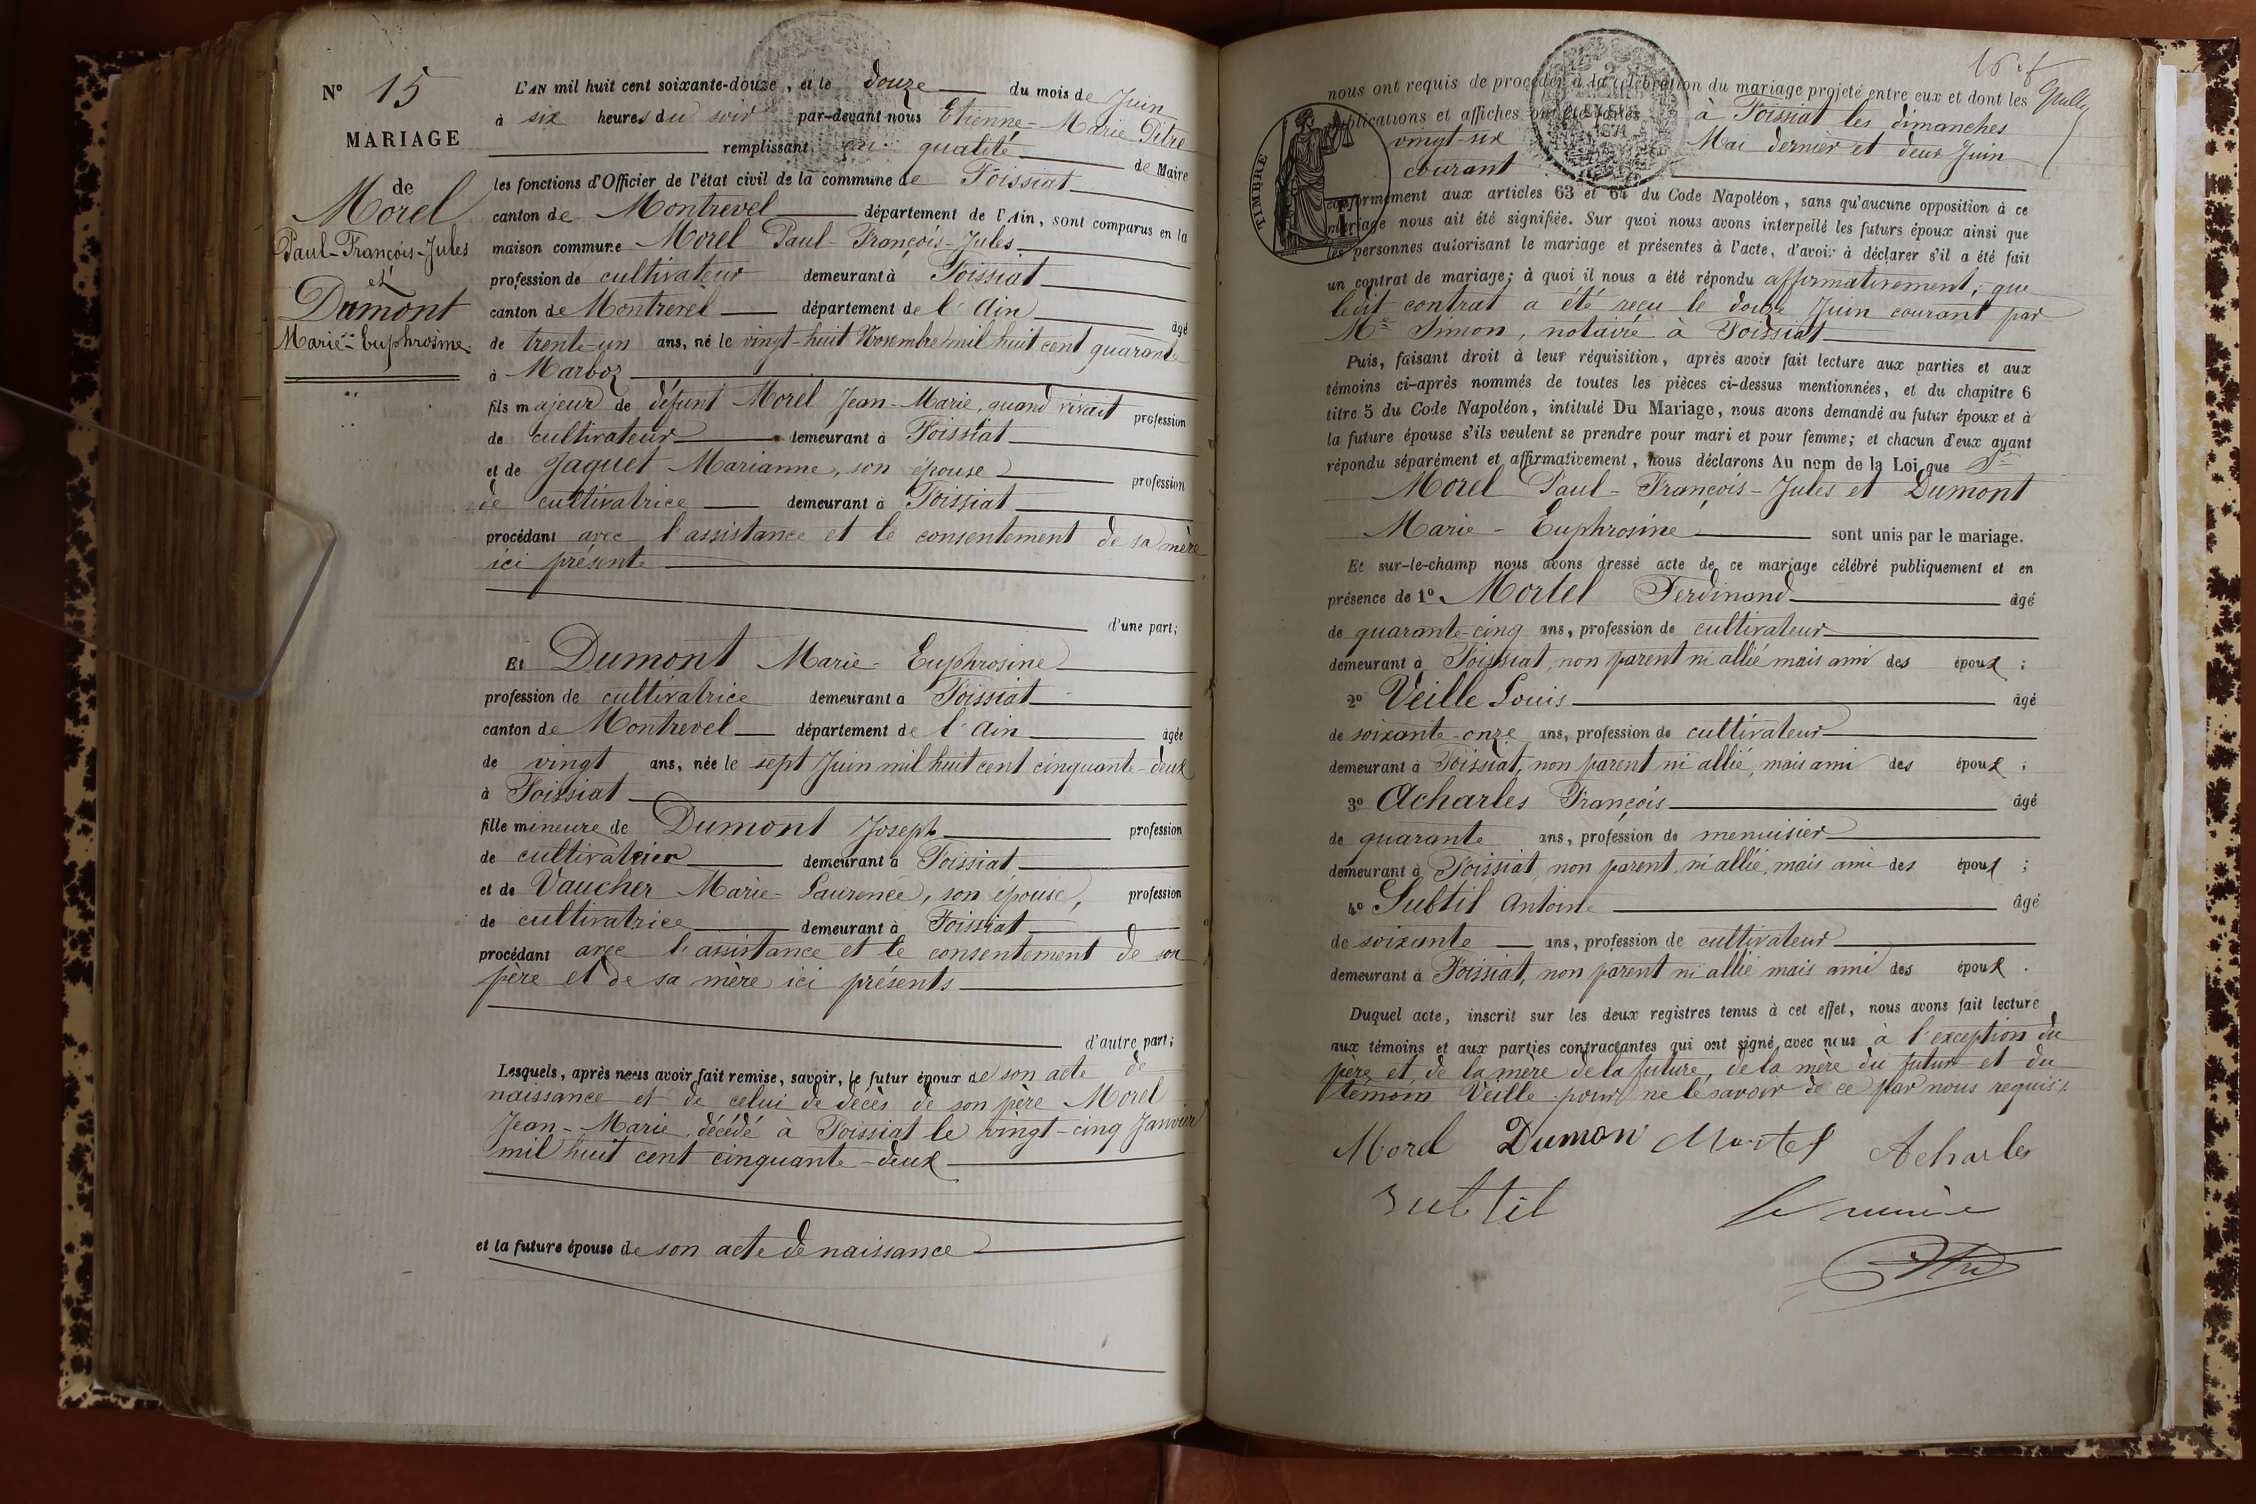 N° 15
MARIAGE
de
Morel
Paul-François-Jules
et
Dumont
Marie-Euphrosine
L'AN mil huit cent soixante-douze, et le douze du mois de Juin
à six heures du soir par-devant nous Etienne-Marie Pitre
remplissant en qualité de Maire
les fonctions d'Officier de l'état civil de la commune de Foissiat
canton de Montrevel département de l'Ain, sont comparus en la
maison commune Morel Paul-François-Jules
profession de cultivateur demeurant à Foissiat
canton de Montrevel département de l'Ain âgé
de trente-un ans, né le vingt-huit Novembre mil huit cent quarante
à Marboz
fils majeur de défunt Morel Jean-Marie, quand vivait profession
de cultivateur demeurant à Foissiat
et de Jaquet Marianne, son épouse profession
de cultivatrice demeurant à Foissiat
procédant avec l'assistance et le consentement de sa mère
ici présente
d'une part;
Et Dumont Marie-Euphrosine
profession de cultivatrice demeurant à Foissiat
canton de Montrevel département de l'Ain âgée
de vingt ans, née le sept Juin mil huit cent cinquante-deux
à Foissiat
fille mineure de Dumont Joseph profession
de cultivateur demeurant à Foissiat
et de Vaucher Marie-Laurence, son épouse, profession
de cultivatrice demeurant à Foissiat
procédant avec l'assistance et le consentement de son
père et de sa mère ici présents
d'autre part;
Lesquels, après nous avoir fait remise, savoir, le futur époux de son acte de
naissance et de celui de décès de son père Morel
Jean-Marie, décédé à Foissiat le vingt-cinq Janvier
mil huit cent cinquante-deux
et la future épouse de son acte de naissance
nous ont requis de procéder à la célébration du mariage projeté entre eux et dont les
publications et affiches ont été faites à Foissiat les dimanches
vingt-six Mai dernier et deux Juin
courant
TIMBRE
1871
conformément aux articles 63 et 64 du Code Napoléon, sans qu'aucune opposition à ce
mariage nous ait été signifiée. Sur quoi nous avons interpellé les futurs époux ainsi que
les personnes autorisant le mariage et présentes à l'acte, d'avoir à déclarer s'il a été fait
un contrat de mariage; à quoi il nous a été répondu affirmativement, que
ledit contrat a été reçu le douze Juin courant par
Me Simon, notaire à Foissiat
Puis, faisant droit à leur réquisition, après avoir fait lecture aux parties et aux
témoins ci-après nommés de toutes les pièces ci-dessus mentionnées, et du chapitre 6
titre 5 du Code Napoléon, intitulé Du Mariage, nous avons demandé au futur époux et à
la future épouse s'ils veulent se prendre pour mari et pour femme; et chacun d'eux ayant
répondu séparément et affirmativement, nous déclarons Au nom de la Loi que
Morel Paul-François-Jules et Dumont
Marie-Euphrosine sont unis par le mariage.
Et sur-le-champ nous avons dressé acte de ce mariage célébré publiquement et en
présence de 1° Mortel Ferdinand âgé
de quarante-cinq ans, profession de cultivateur
demeurant à Foissiat, non parent ni allié mais ami des époux;
2° Veille Louis âgé
de soixante-onze ans, profession de cultivateur
demeurant à Foissiat, non parent ni allié, mais ami des époux;
3° Acharles François âgé
de quarante ans, profession de menuisier
demeurant à Foissiat, non parent, ni allié, mais ami des époux;
4° Subtil Antoine âgé
de soixante ans, profession de cultivateur
demeurant à Foissiat, non parent ni allié mais ami des époux.
Duquel acte, inscrit sur les deux registres tenus à cet effet, nous avons fait lecture
aux témoins et aux parties contractantes qui ont signé avec nous à l'exception du
père et de la mère de la future, de la mère du futur et du
témoin Veille pour ne le savoir de ce par nous requis
Morel Dumon Mortel Acharles
Subtil le maire
Pitre